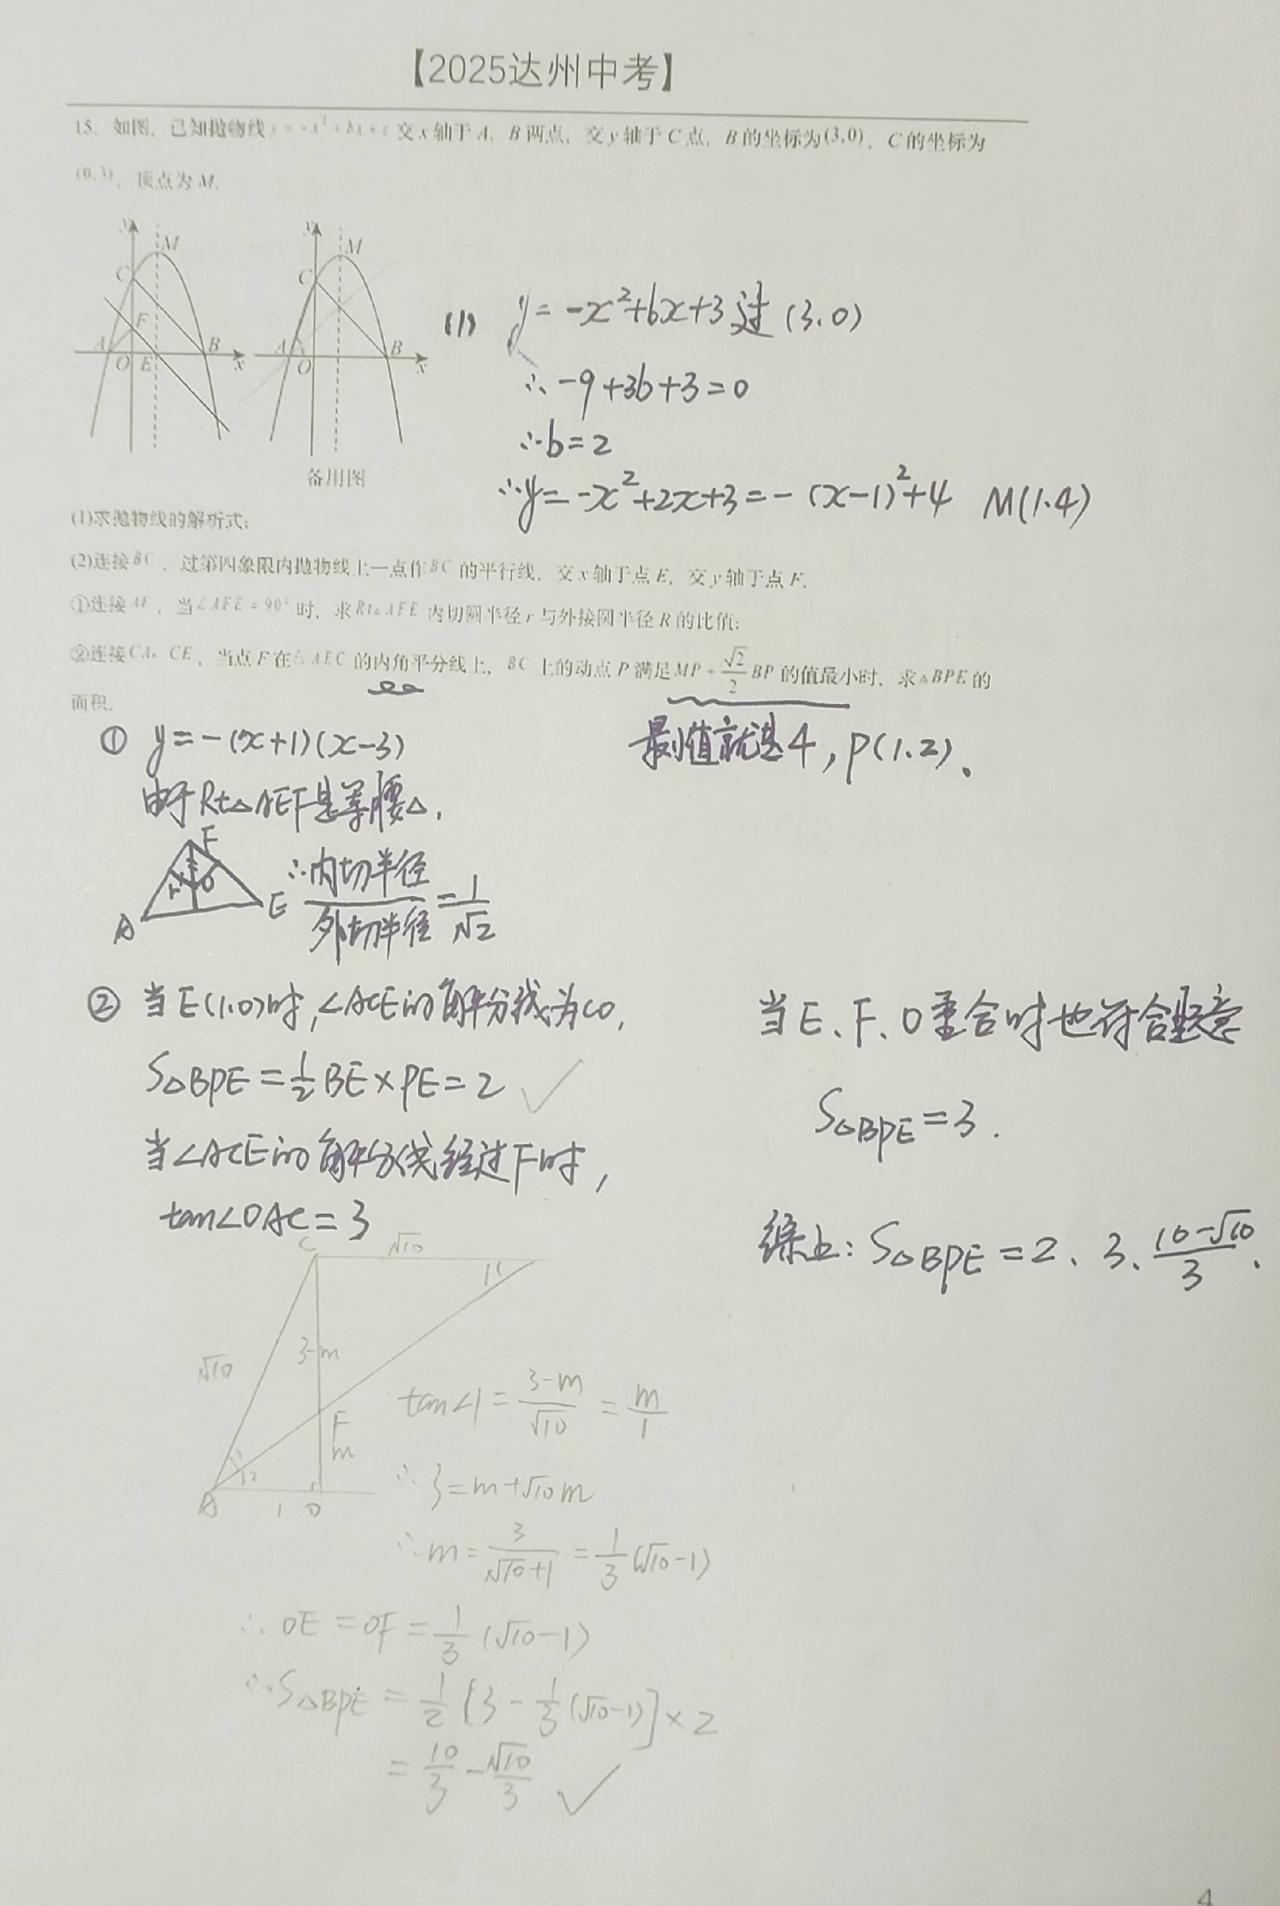 【2025达州中考】
15. 如图, 已知抛物线 y=-x²+bx+c 交 x 轴于 A, B 两点, 交 y 轴于 C 点, B 的坐标为(3,0), C 的坐标为
(0,3), 顶点为 M.
y M C F A O E B x
y M C A O B x
备用图
(1) y=-x²+bx+3过(3.0)
∴-9+3b+3=0
∴b=2
∴y=-x²+2x+3=-(x-1)²+4 M(1.4)
(1)求抛物线的解析式;
(2)连接 BC, 过第四象限内抛物线上一点作 BC 的平行线, 交 x 轴于点 E, 交 y 轴于点 F.
①连接 AF, 当∠AFE=90°时, 求 Rt△AFE 内切圆半径 r 与外接圆半径 R 的比值;
②连接 CA, CE, 当点 F 在△AEC 的内角平分线上, BC 上的动点 P 满足 MP+√2/2 BP 的值最小时, 求△BPE 的
面积.
最小值就是4, P(1.2).
① y=-(x+1)(x-3)
由于Rt△AEF是等腰△.
F r A E
∴内切半径/外切半径=1/√2
② 当E(1.0)时,∠ACE的角平分线为CO,
S△BPE=1/2BE×PE=2 ✓
当∠ACE的角平分线经过F时,
tan∠OAC=3
当E、F、O重合时也符合题意
S△BPE=3.
综上: S△BPE=2、3、(10-√10)/3.
C √10 1
√10 3-m
F m
A 2 1 O
tan∠1=(3-m)/√10=m/1
∴3=m+√10m
∴m=3/(√10+1)=1/3(√10-1)
∴OE=OF=1/3(√10-1)
∴S△BPE=1/2[3-1/3(√10-1)]×2
=10/3-√10/3 ✓
4